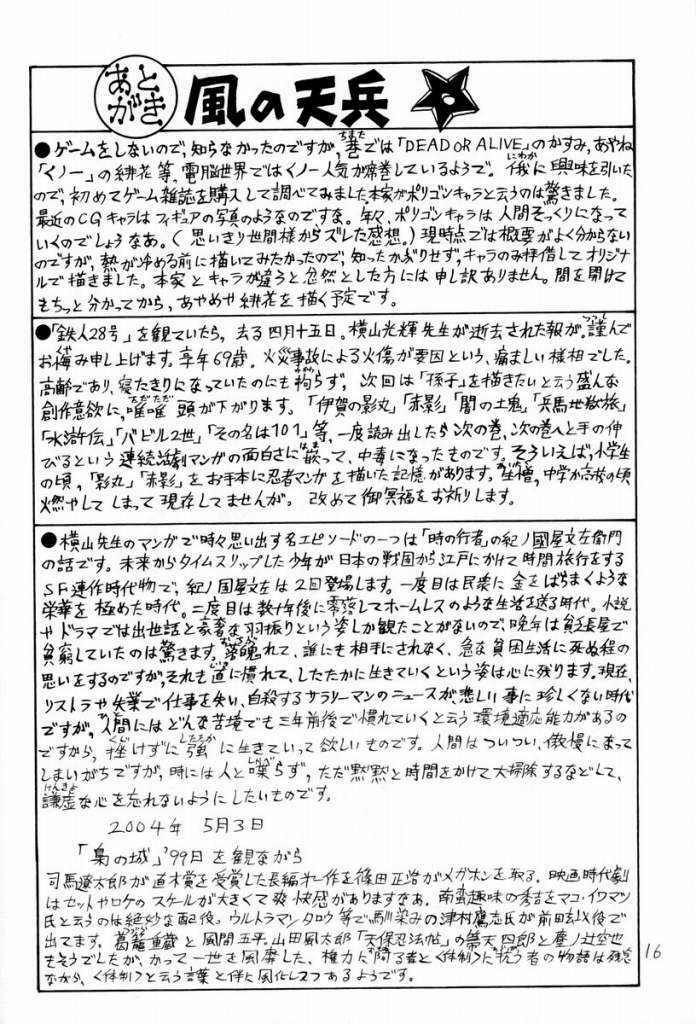 あとがき 風の天兵
●ゲームをしないので、知らなかったのですが、巷では「DEAD OR ALIVE」のかすみ、あやね
「くノ一」の緋花 等、電脳世界ではくノ一人気が席巻しているようで。俄に興味を引いた
ので、初めてゲーム雑誌を購入して調べてみました。本家がポリゴンキャラと云うのは驚きました。
最近のCGキャラは フィギュアの写真のようなのですな。年々、ポリゴンキャラは 人間そっくりになって
いくのでしょうなあ。(思いきり世間様からズレた感想。)現時点では概要がよく分からない
のですが、熱が冷める前に描いてみたかったので、知ったかぶりせず、キャラのみ拝借して オリジナ
ルで描きました。本家 とキャラが違うと 忽然とした方には申し訳ありません。間を開けて
もちっと分かってから、あやめや 緋花を描く予定です。
●「鉄人28号」を観ていたら、去る四月十五日。横山光輝先生が逝去された報が。謹んで
お悔み申し上げます。享年69歳。火災事故による火傷が要因という、痛ましい様相でした。
高齢であり、寝たきりになっていたのにも拘らず、次回は「孫子」を描きたいと云う盛んな
創作意欲に、唯唯 頭が下がります。「伊賀の影丸」「赤影」「闇の土鬼」「兵馬地獄旅」
「水滸伝」「バビル2世」「その名は101」等、一度読み出したら次の巻、次の巻へと手の伸
びるという 連続活劇マンガの面白さに嵌って、中毒になったものです。そういえば、小学生
の頃、「影丸」「赤影」をお手本に忍者マンガを描いた記憶があります。生憎、中学か高校の頃
燃やして しまって 現存してませんが。 改めて御冥福をお祈りします。
●横山先生のマンガで時々思い出す名エピソードの一つは「時の行者」の紀ノ國屋文左衛門
の話です。未来からタイムスリップした少年が 日本の戦国から江戸にかけて 時間旅行をする
SF連作時代物で、紀ノ国屋文左は2回登場します。一度目は民衆に 金をばらまくような
栄華を 極めた時代。二度目は数十年後に零落してホームレスのような生活を送る時代。小説
や ドラマでは出世話と豪奢な羽振りという姿しか観たことがないので、晩年は貧乏長屋で
貧窮していたのは驚きます。落魄れて、誰にも相手にされなく、急な 貧困生活に死ぬ程の
思いをするのですが、それも直に慣れて、したたかに生きていくという姿は心に残ります。現在、
リストラや失業で仕事を失い、自殺するサラリーマンのニュースが、悲しい事に珍しくない時代
ですが、人間にはどんな苦境でも三年前後で慣れていくと云う 環境適応能力があるの
ですから、挫けずに 強 に生きていって欲しいものです。人間はついつい、傲慢になって
しまいがちですが、時には人と喋らず、ただ黙黙と時間をかけて大掃除するなどして、
謙虚な心を忘れないようにしたいものです。
2004年 5月3日
「梟の城」'99日 を観ながら
司馬遼太郎が直木賞を受賞した長編第一作を篠田正浩がメガホンを取る。映画時代劇
はセットやロケの スケールが大きくて爽快感がありますなあ。南蛮趣味の秀吉をマコ・イワマツ
氏と云うのは絶妙な配役。ウルトラマンタロウ 等で馴染みの津村鷹志氏が前田玄以役で
出てます。葛籠重蔵 と 風間五平。山田風太郎「天保忍法帖」の 四郎と塵ノ辻空也
もそうでしたが、かつて一世を風靡した、権力に 者と〈体制〉に抗う者の物語は残念
ながら、〈体制〉と云う言葉と伴に風化しつつあるようです。
16